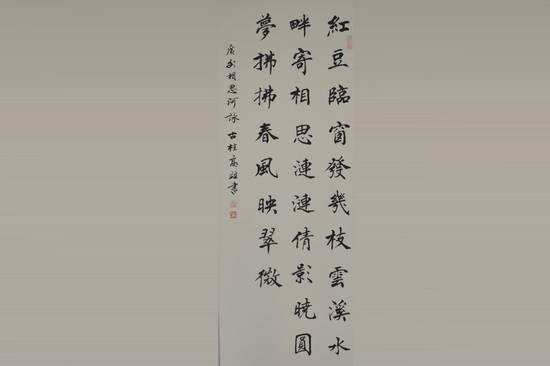 紅豆臨窗發幾枝雲溪水
畔寄相思漣漣倩影曉圓
夢拂拂春風映翠微
廣外相思河詠 古桂高書